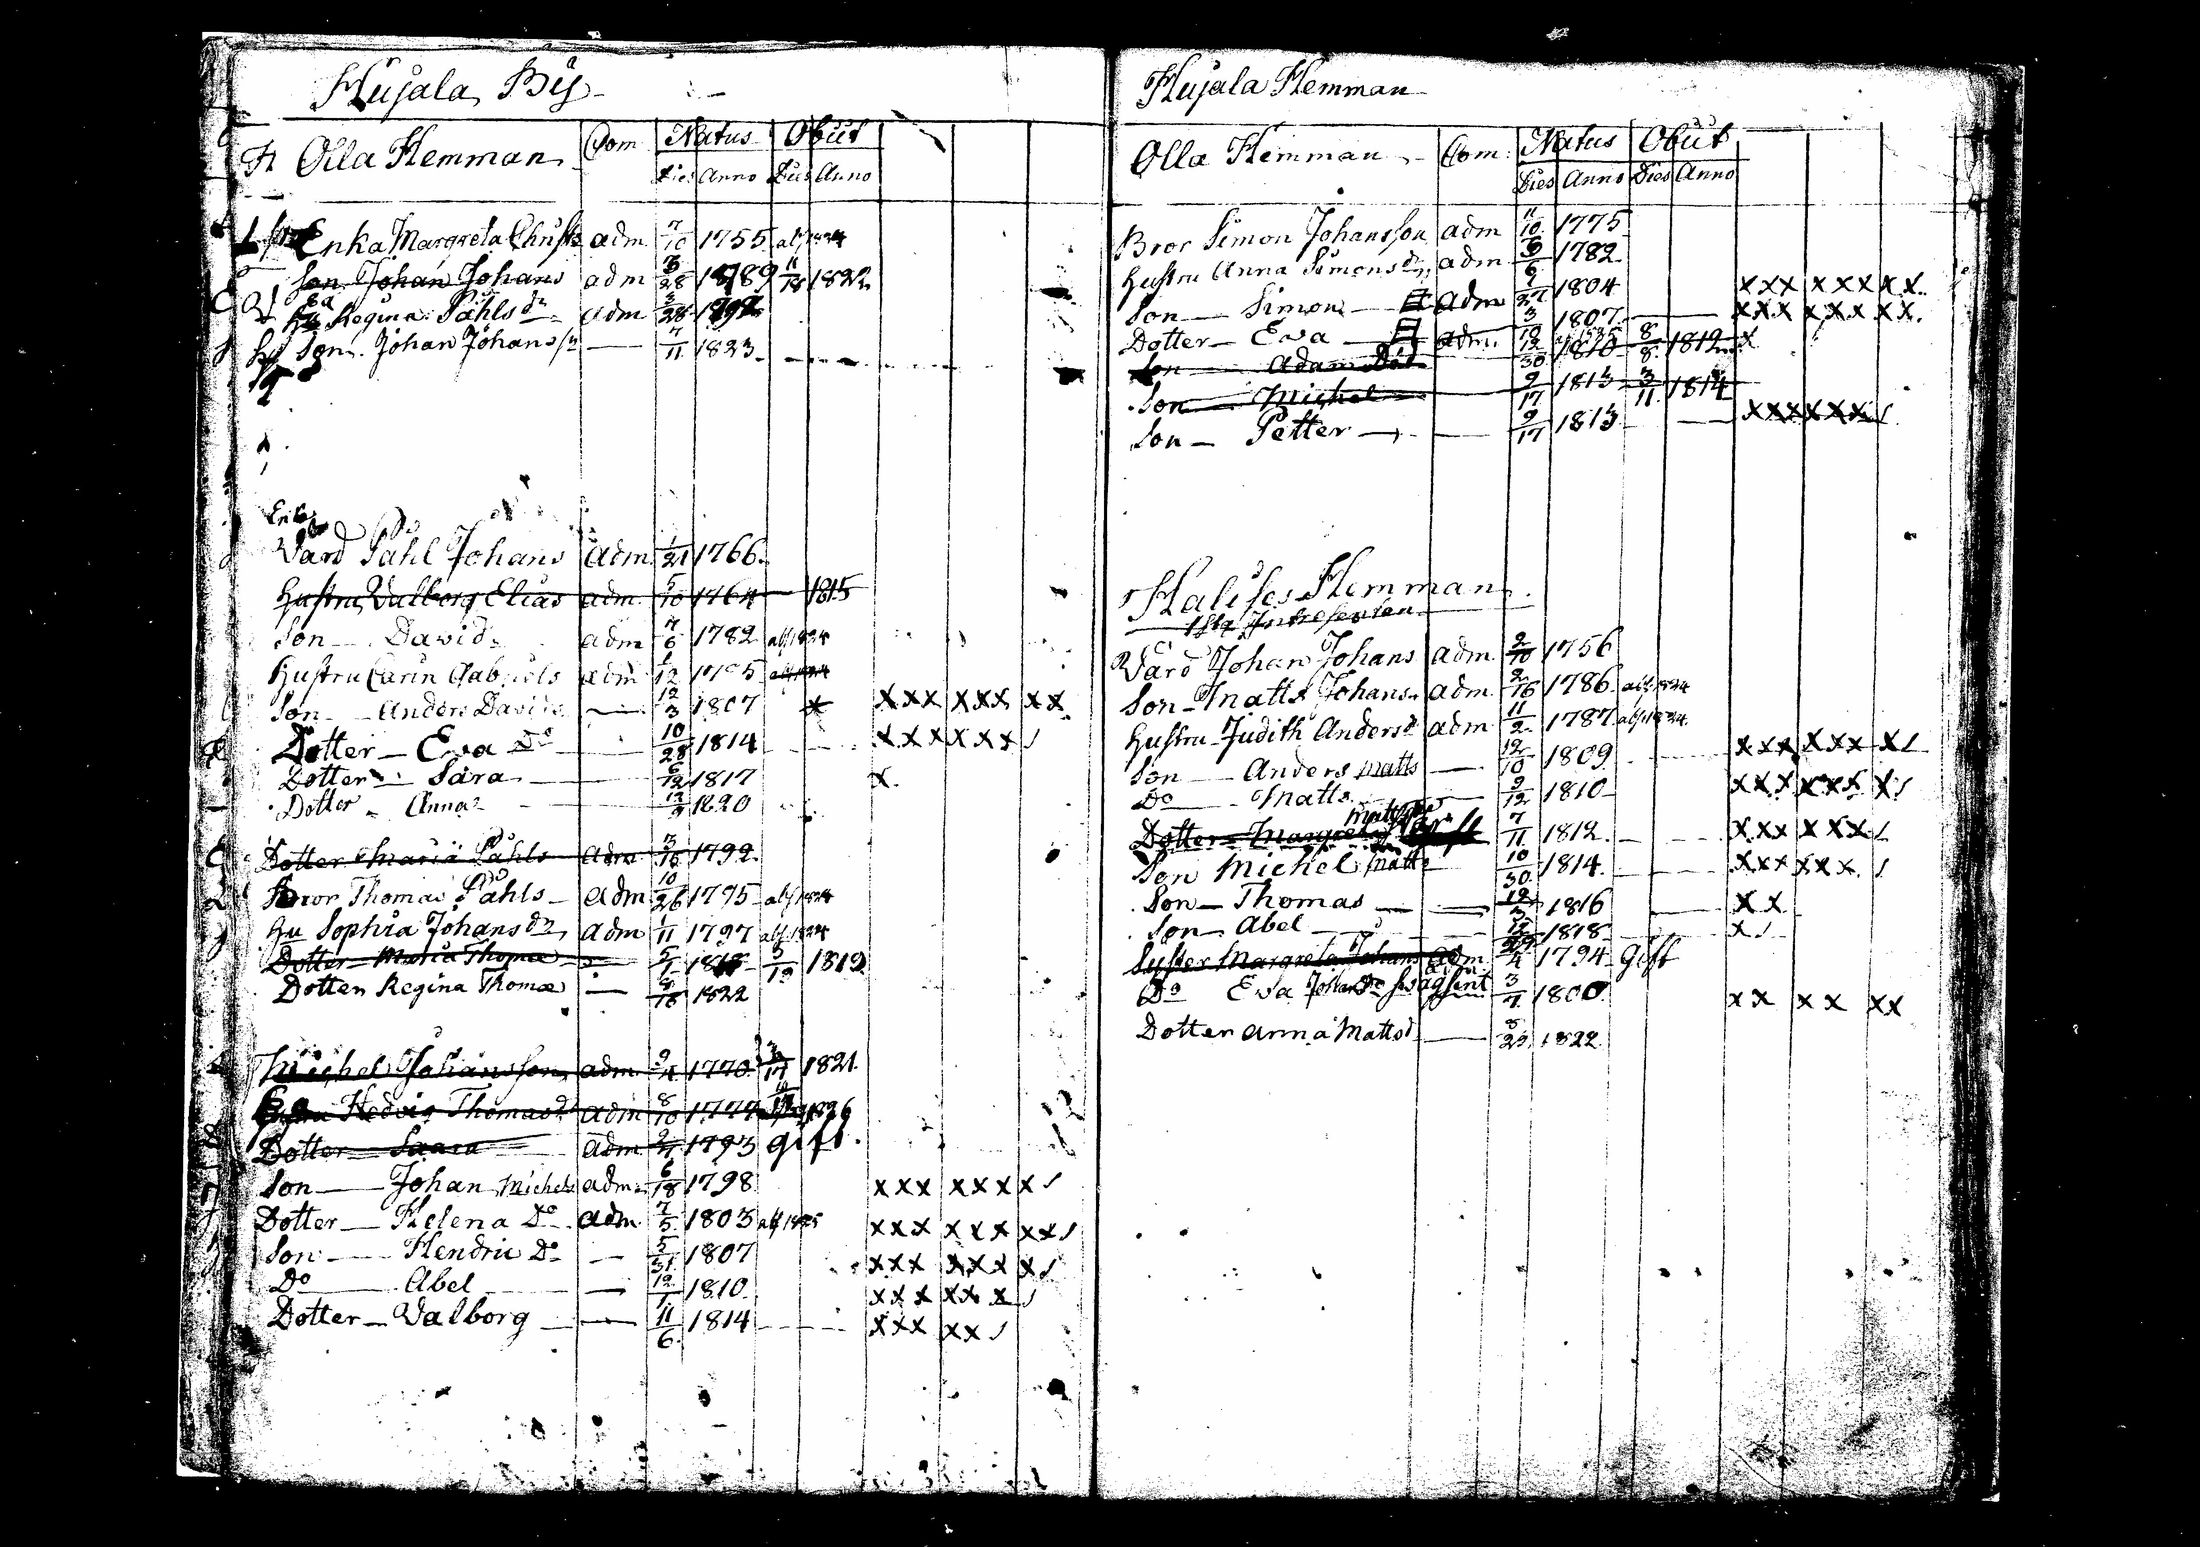 Hujala By
Olla Hemman Com Natus Obiit
Dies Anno Dies Anno
Enka Margreta Christ adm 7/10 1755
Son Johan Johans adm 28 1789 11/18 1822
Regina Påhlsdr adm 3/28
Son Johan Johanss 7/11 1823
Enkl
Värd Påhl Johans adm 1/21 1766
Hustru Valborg Elias adm 5/10 1764 1815
Son David adm 7/6 1782
Hustru Carin Gabriels adm 1/12
Son Anders Davids 12/3 1807 x xxx xxx xx
Dotter Eva Do 10/28 1814 xxx xxx /
Dotter Sara 6/12 1817 x
Dotter Anna 12/2 1820
Dotter Maria Påhls adm 3/16 1792
Bror Thomas Påhls adm 10/26 1795
Hu Sophia Johansdr adm 1/11 1797
Dotter Maria Thomæ 1819
Dotter Regina Thomæ 18 1822
Michel Johansson adm 9/4 1770 17 1821
Hustru Hedvig Thomasdr adm 8/10 1777 1826
Dotter Saara adm 1793 gift
Son Johan Michels adm 6/18 1798 xxx xxx x /
Dotter Helena Do adm 7/5 1803 xxx xxx xx /
Son Hendric Do 5/31 1807 xxx xxx x /
Do Abel 12/1 1810 xxx xx x /
Dotter Valborg 11/6 1814 xxx xx /
Hujala Hemman
Olla Hemman Com Natus Obiit
Dies Anno Dies Anno
Bror Simon Johansson adm 11/10 1775
Hustru Anna Simonsdr adm 6 1782
Son Simon adm 27 1804 xxx xxx xx
Dotter Eva adm 3/10 1807 xxx xxx xx
Son Adam Död 12/30 1810 8/8 1812 x
Son Michel 9/17 1813 3/11 1814
Son Petter 9/17 1813 xxx xxx /
Halises Hemman
1sta Intressenten
Värd Johan Johans adm 2/10 1756
Son Matts Johans adm 2/16 1786
Hustru Judith Andersd adm 11/2 1787
Son Anders Matts 12/10 1809 xxx xxx x /
Do Matts 9/12 1810 xxx xxx x /
Dotter Margreta Matts 7/11 1812 xxx xxx /
Son Michel Matts 10/30 1814 xxx xxx /
Son Thomas 12/3 1816 xx
Son Abel 12/29 1818 x /
Syster Margreta Johans adm 4 1794 Gift
Do Eva Johans Do adm 3/7 1800 xx xx xx
Dotter Anna Mattsd 8/25 1822